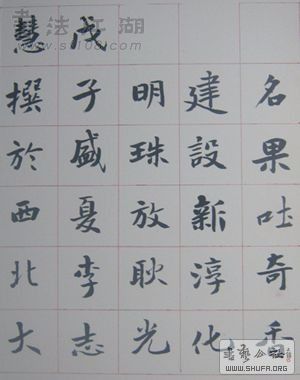 名果吐奇香
建設新淳化
明珠放耿光
戊子盛夏李志
慧撰於西北大
法江湖
WWW.SHUFA.ORG